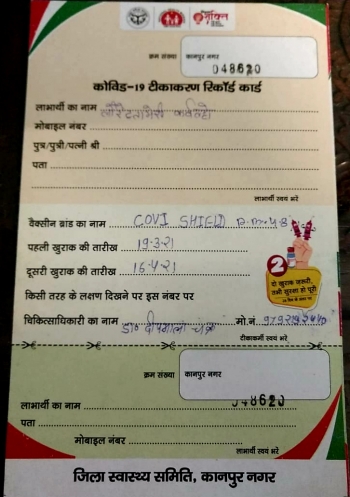 क्रम संख्या कानपुर नगर
048620
कोविड-19 टीकाकरण रिकॉर्ड कार्ड
लाभार्थी का नाम
मोबाइल नंबर
पुत्र/पुत्री/पत्नी श्री
पता
लाभार्थी स्वयं भरे
वैक्सीन ब्रांड का नाम COVI SHIELD
पहली खुराक की तारीख 19-3-21
दूसरी खुराक की तारीख 16-4-21
2
दो खुराक जरूरी,
तभी सुरक्षा हो पूरी
किसी तरह के लक्षण दिखने पर इस नंबर पर
चिकित्साधिकारी का नाम डा० मो.नं.
टीकाकर्मी स्वयं भरे
क्रम संख्या कानपुर नगर
048620
लाभार्थी का नाम
पता
मोबाइल नंबर
लाभार्थी स्वयं भरे
जिला स्वास्थ्य समिति, कानपुर नगर